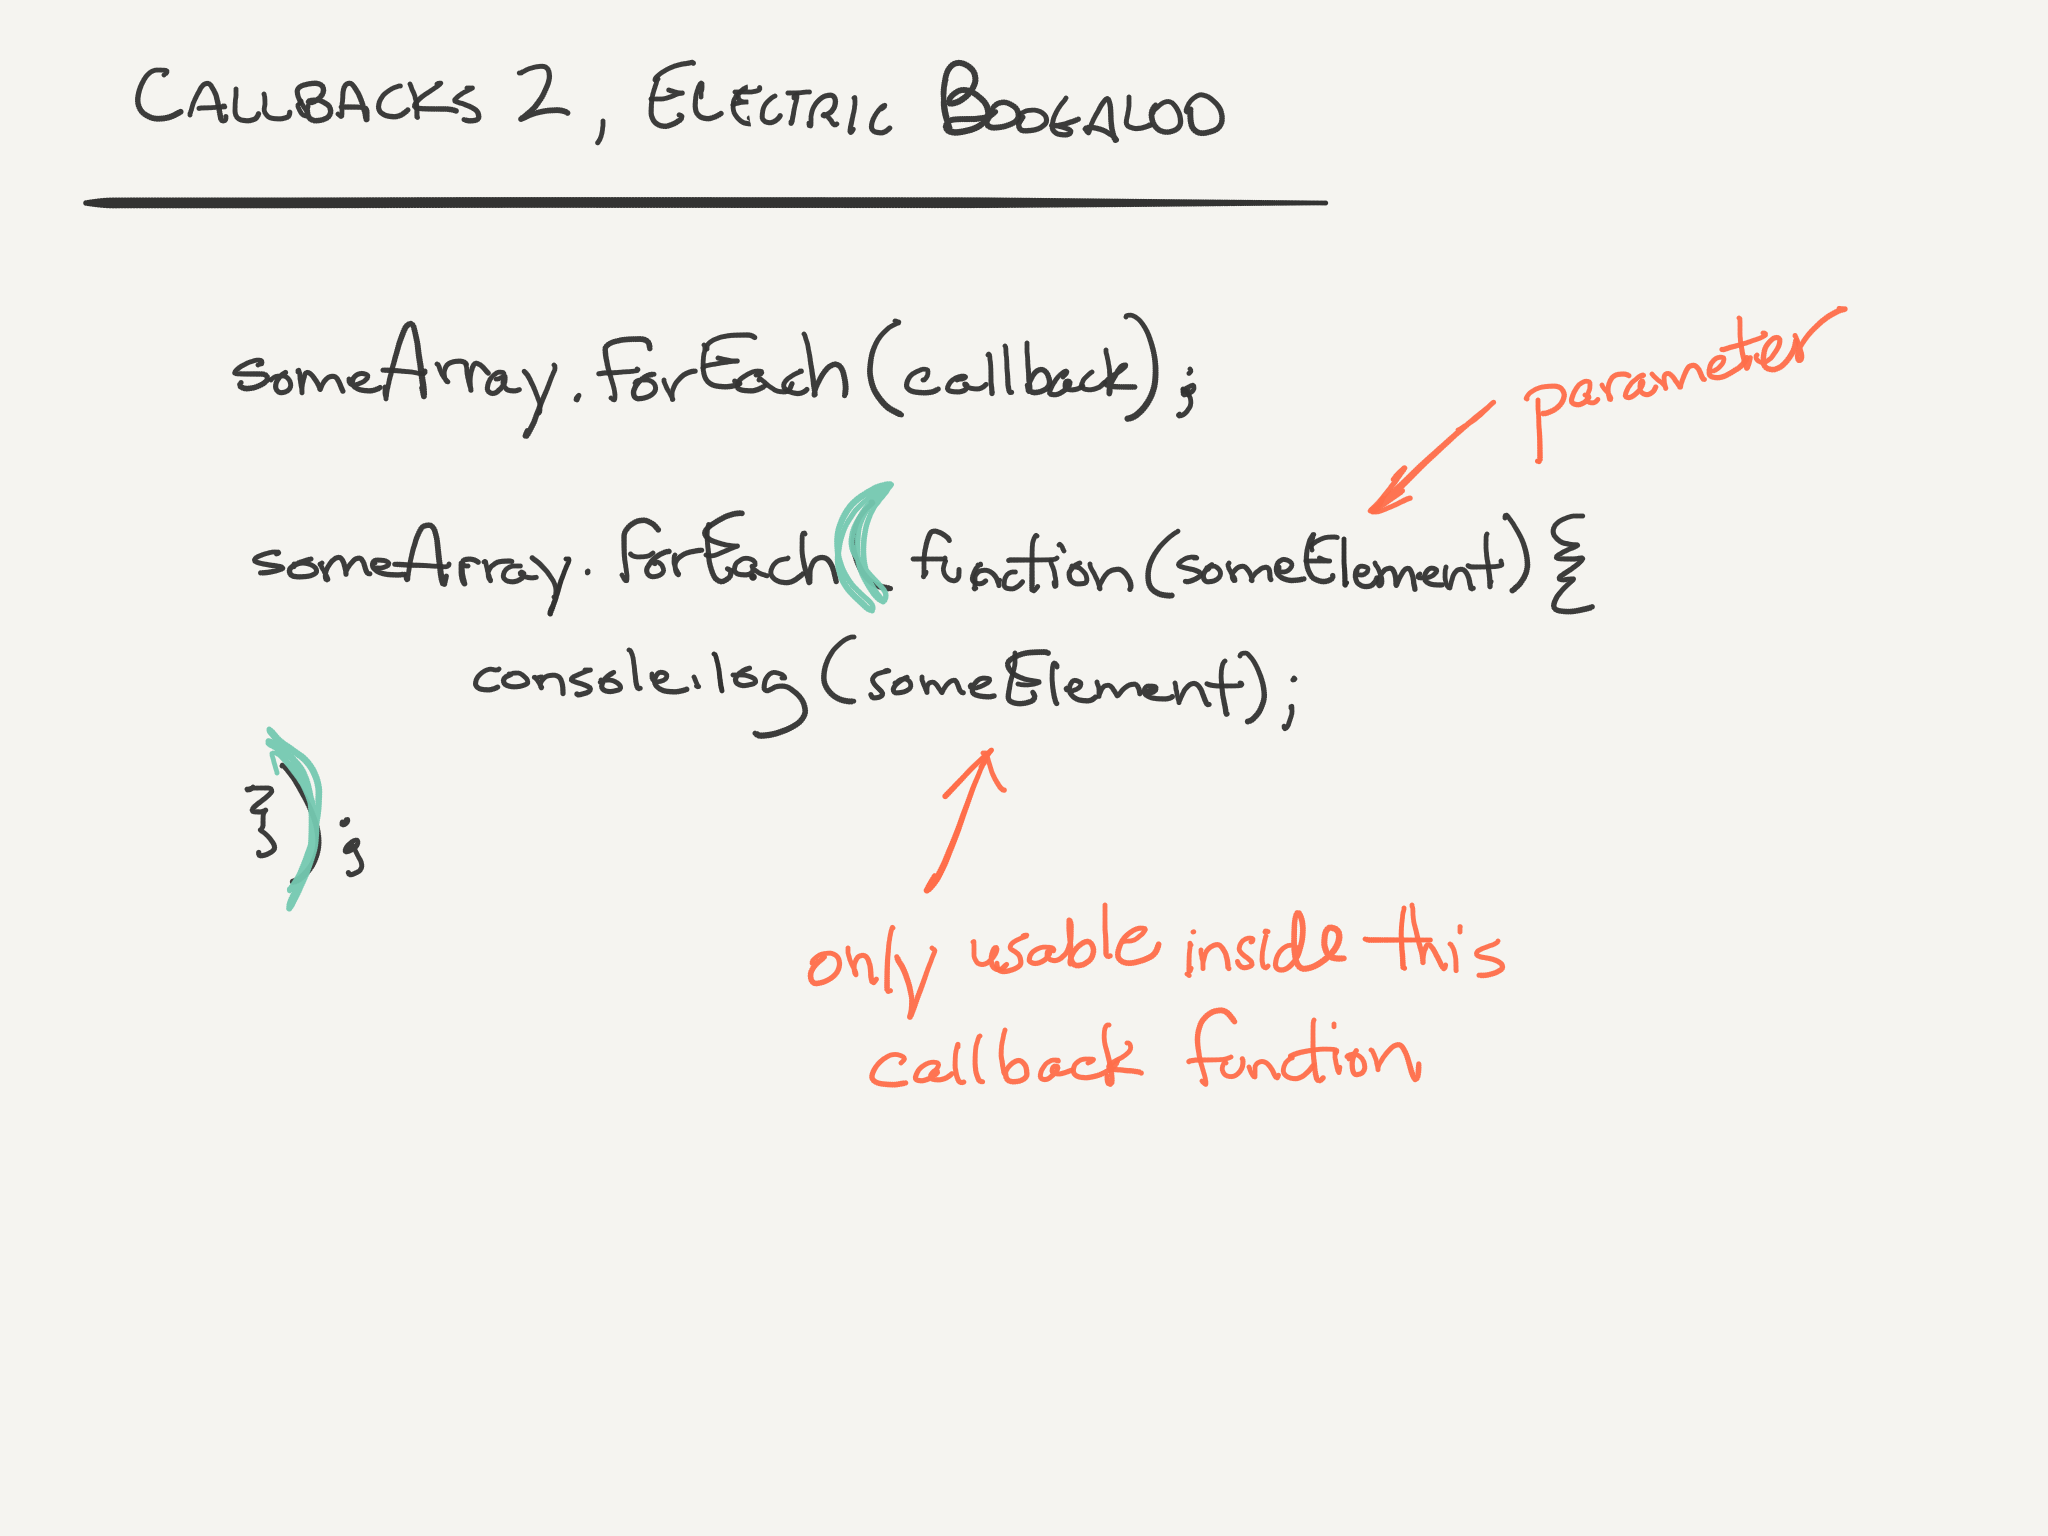 CALLBACKS 2, ELECTRIC BOOGALOO
someArray.forEach(callback);
parameter
someArray.forEach(function(someElement){
console.log(someElement);
});
only usable inside this
callback function